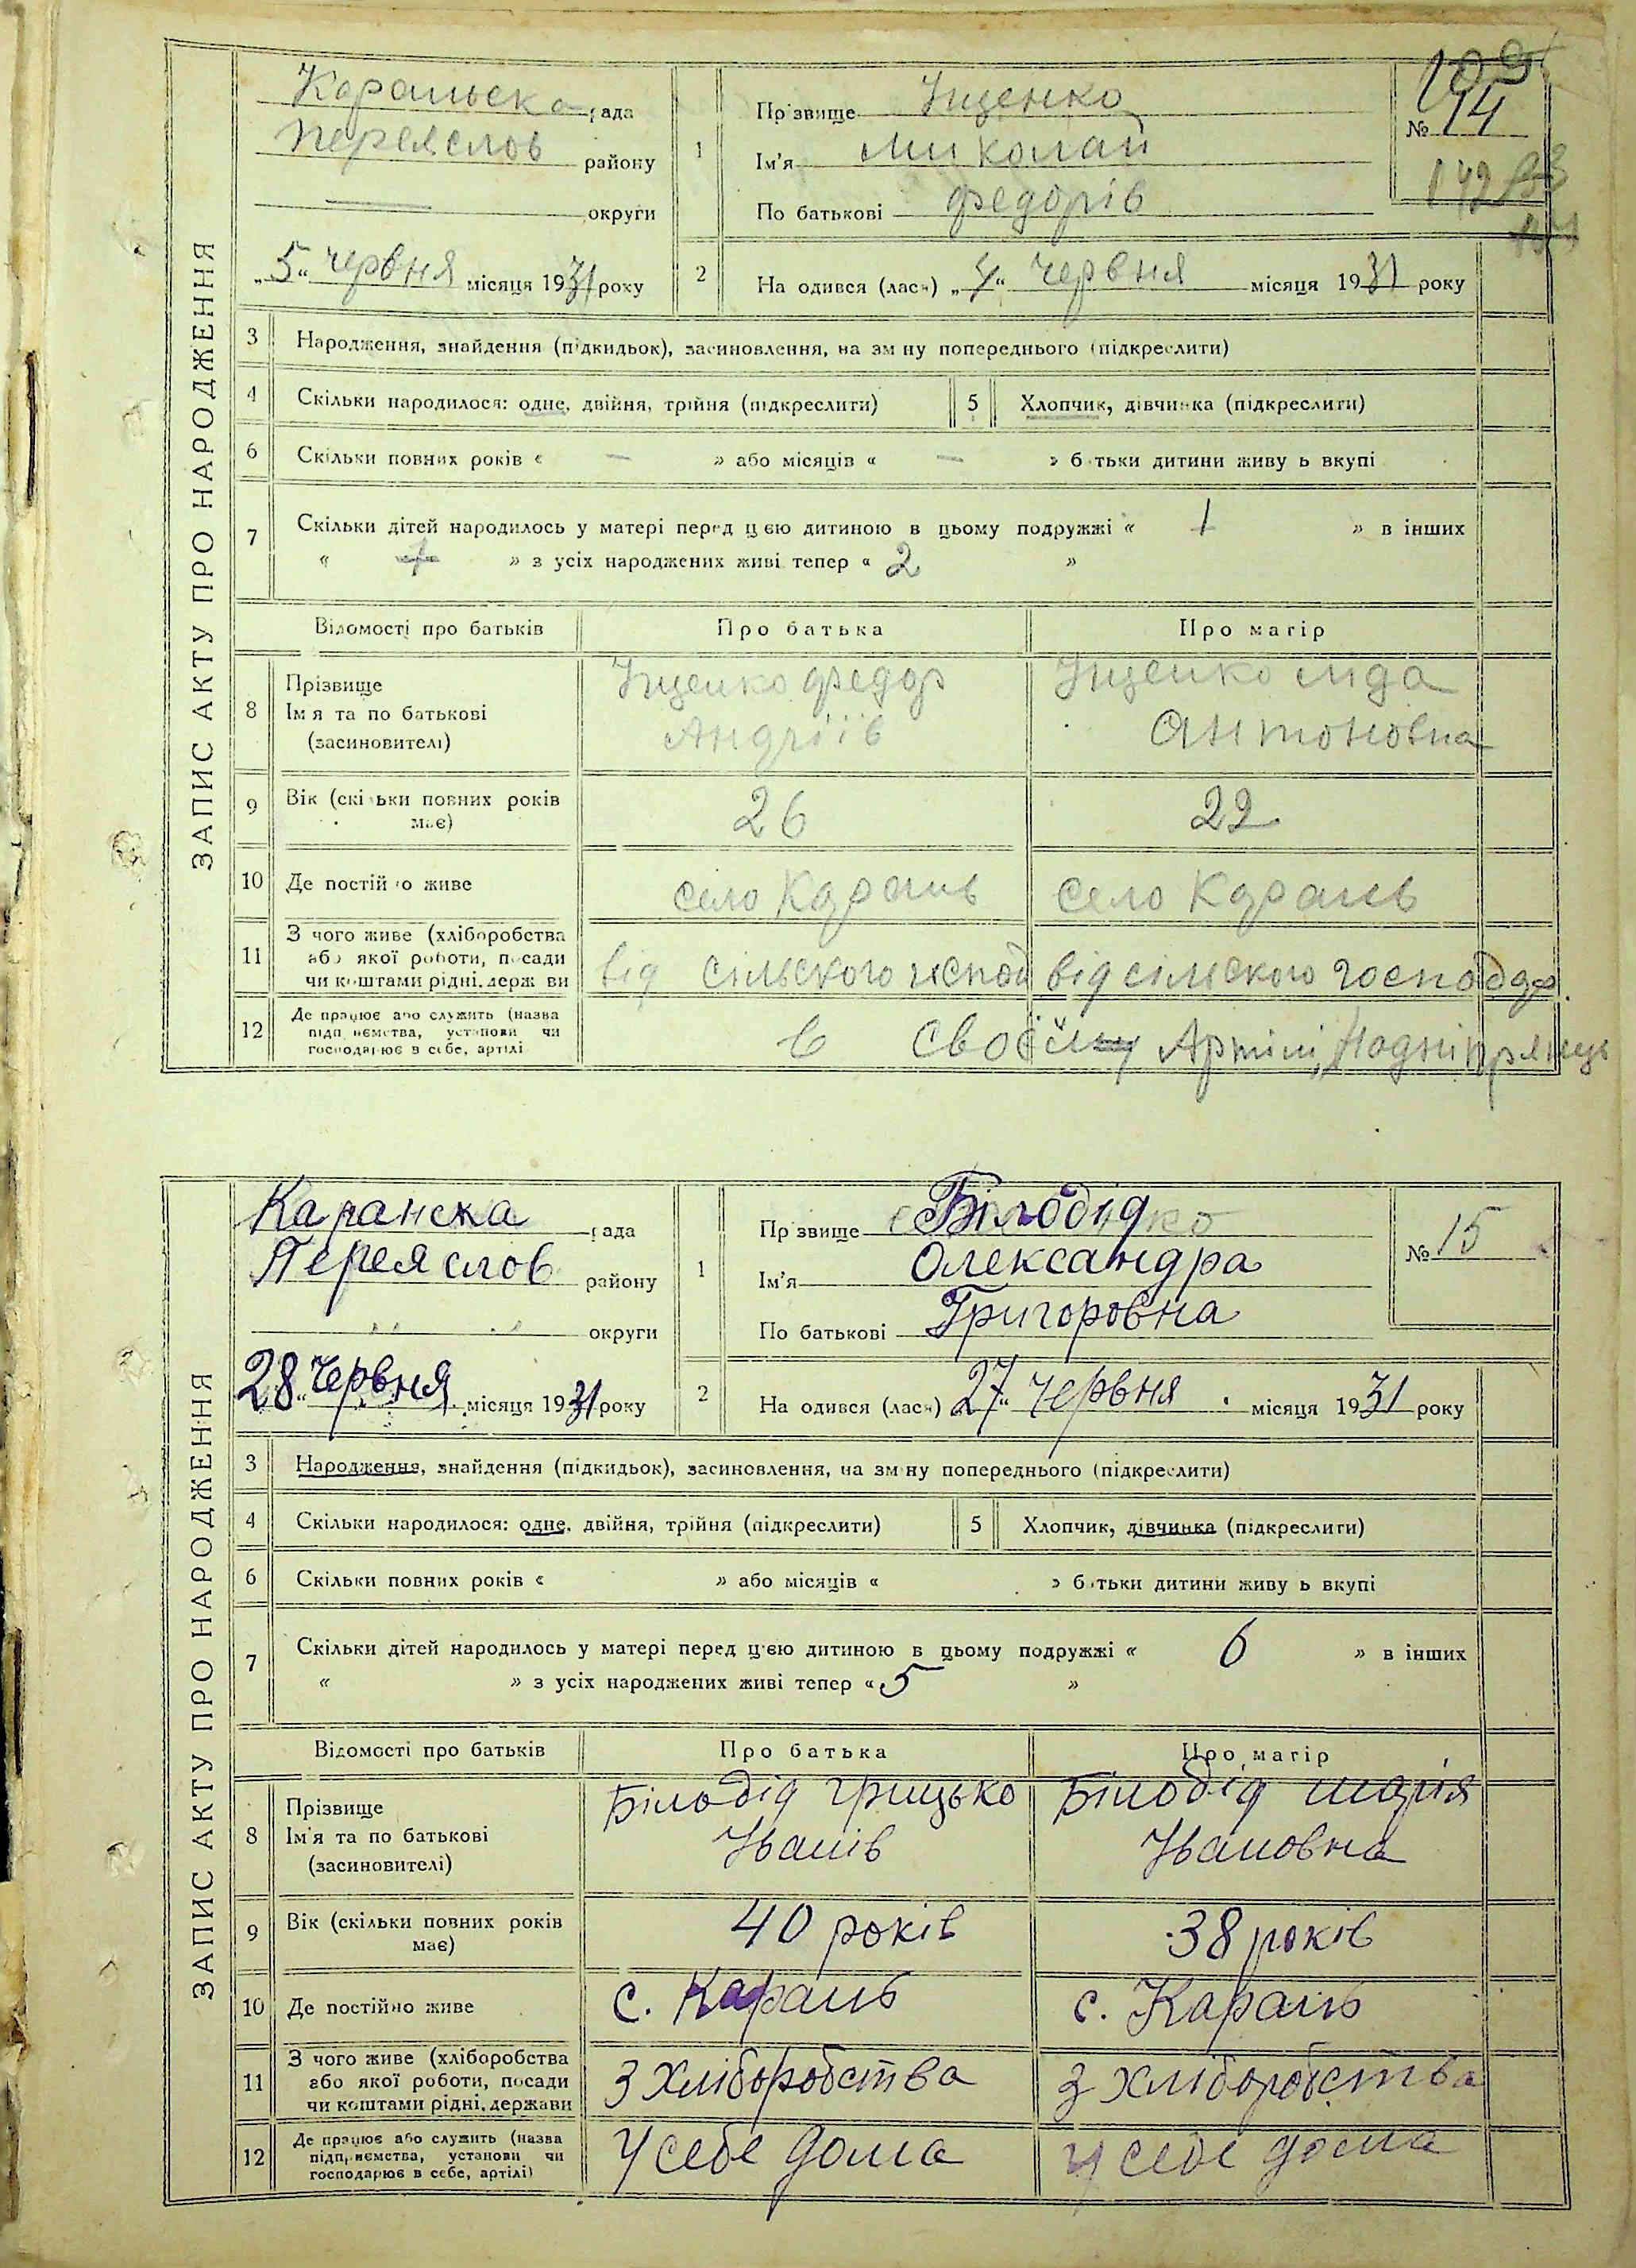 ЗАПИС АКТУ ПРО НАРОДЖЕННЯ
Каранська рада
Переяслов району
округи
„5“ червня місяця 1931 року
1
Прізвище Іщенко
Ім'я Миколай
По батькові Федорів
109
№ 14
142
2 На одився (лася) „4“ червня місяця 1931 року
3 Народження, знайдення (підкидьок), засиновлення, на зм ну попереднього (підкреслити)
4 Скільки народилося: одне, двійня, трійня (підкреслити) 5 Хлопчик, дівчинка (підкреслити)
6 Скільки повних років « — » або місяців « — » б тьки дитини живу ь вкупі
7 Скільки дітей народилось у матері перед цією дитиною в цьому подружжі « 1 » в інших
« » з усіх народжених живі тепер « 2 »
Відомості про батьків Про батька Про матір
8 Прізвище Ім'я та по батькові (засиновителі)
Іщенко Федор Андріїв
Іщенко Ліда Антоновна
9 Вік (скільки повних років має) 26 22
10 Де постійно живе село Карань село Карань
11 З чого живе (хліборобства або якої роботи, посади чи коштами рідні, держави
від сільского господ від сільского господар.
12 Де працює або служить (назва підприємства, установи чи господарює в себе, артілі
в своєму Артілі „Надніпрянць
ЗАПИС АКТУ ПРО НАРОДЖЕННЯ
Каранска рада
Переяслов району
округи
28 „ червня місяця 1931 року
1
Прізвище Білодід
Ім'я Олександра
По батькові Григоровна
№ 15
2 На одився (лася) 27 „ червня місяця 1931 року
3 Народження, знайдення (підкидьок), засиновлення, на зм ну попереднього (підкреслити)
4 Скільки народилося: одне, двійня, трійня (підкреслити) 5 Хлопчик, дівчинка (підкреслити)
6 Скільки повних років « » або місяців « » б тьки дитини живу ь вкупі
7 Скільки дітей народилось у матері перед цією дитиною в цьому подружжі « 6 » в інших
« » з усіх народжених живі тепер « 5 »
Відомості про батьків Про батька Про матір
8 Прізвище Ім'я та по батькові (засиновителі)
Білодід Грицько Іванів
Білодід Марія Івановна
9 Вік (скільки повних років має) 40 років 38 років
10 Де постійно живе с. Карань с. Карань
11 З чого живе (хліборобства або якої роботи, посади чи коштами рідні, держави
З хліборобства З хліборобства
12 Де працює або служить (назва підприємства, установи чи господарює в себе, артілі)
У себе дома У себе дома